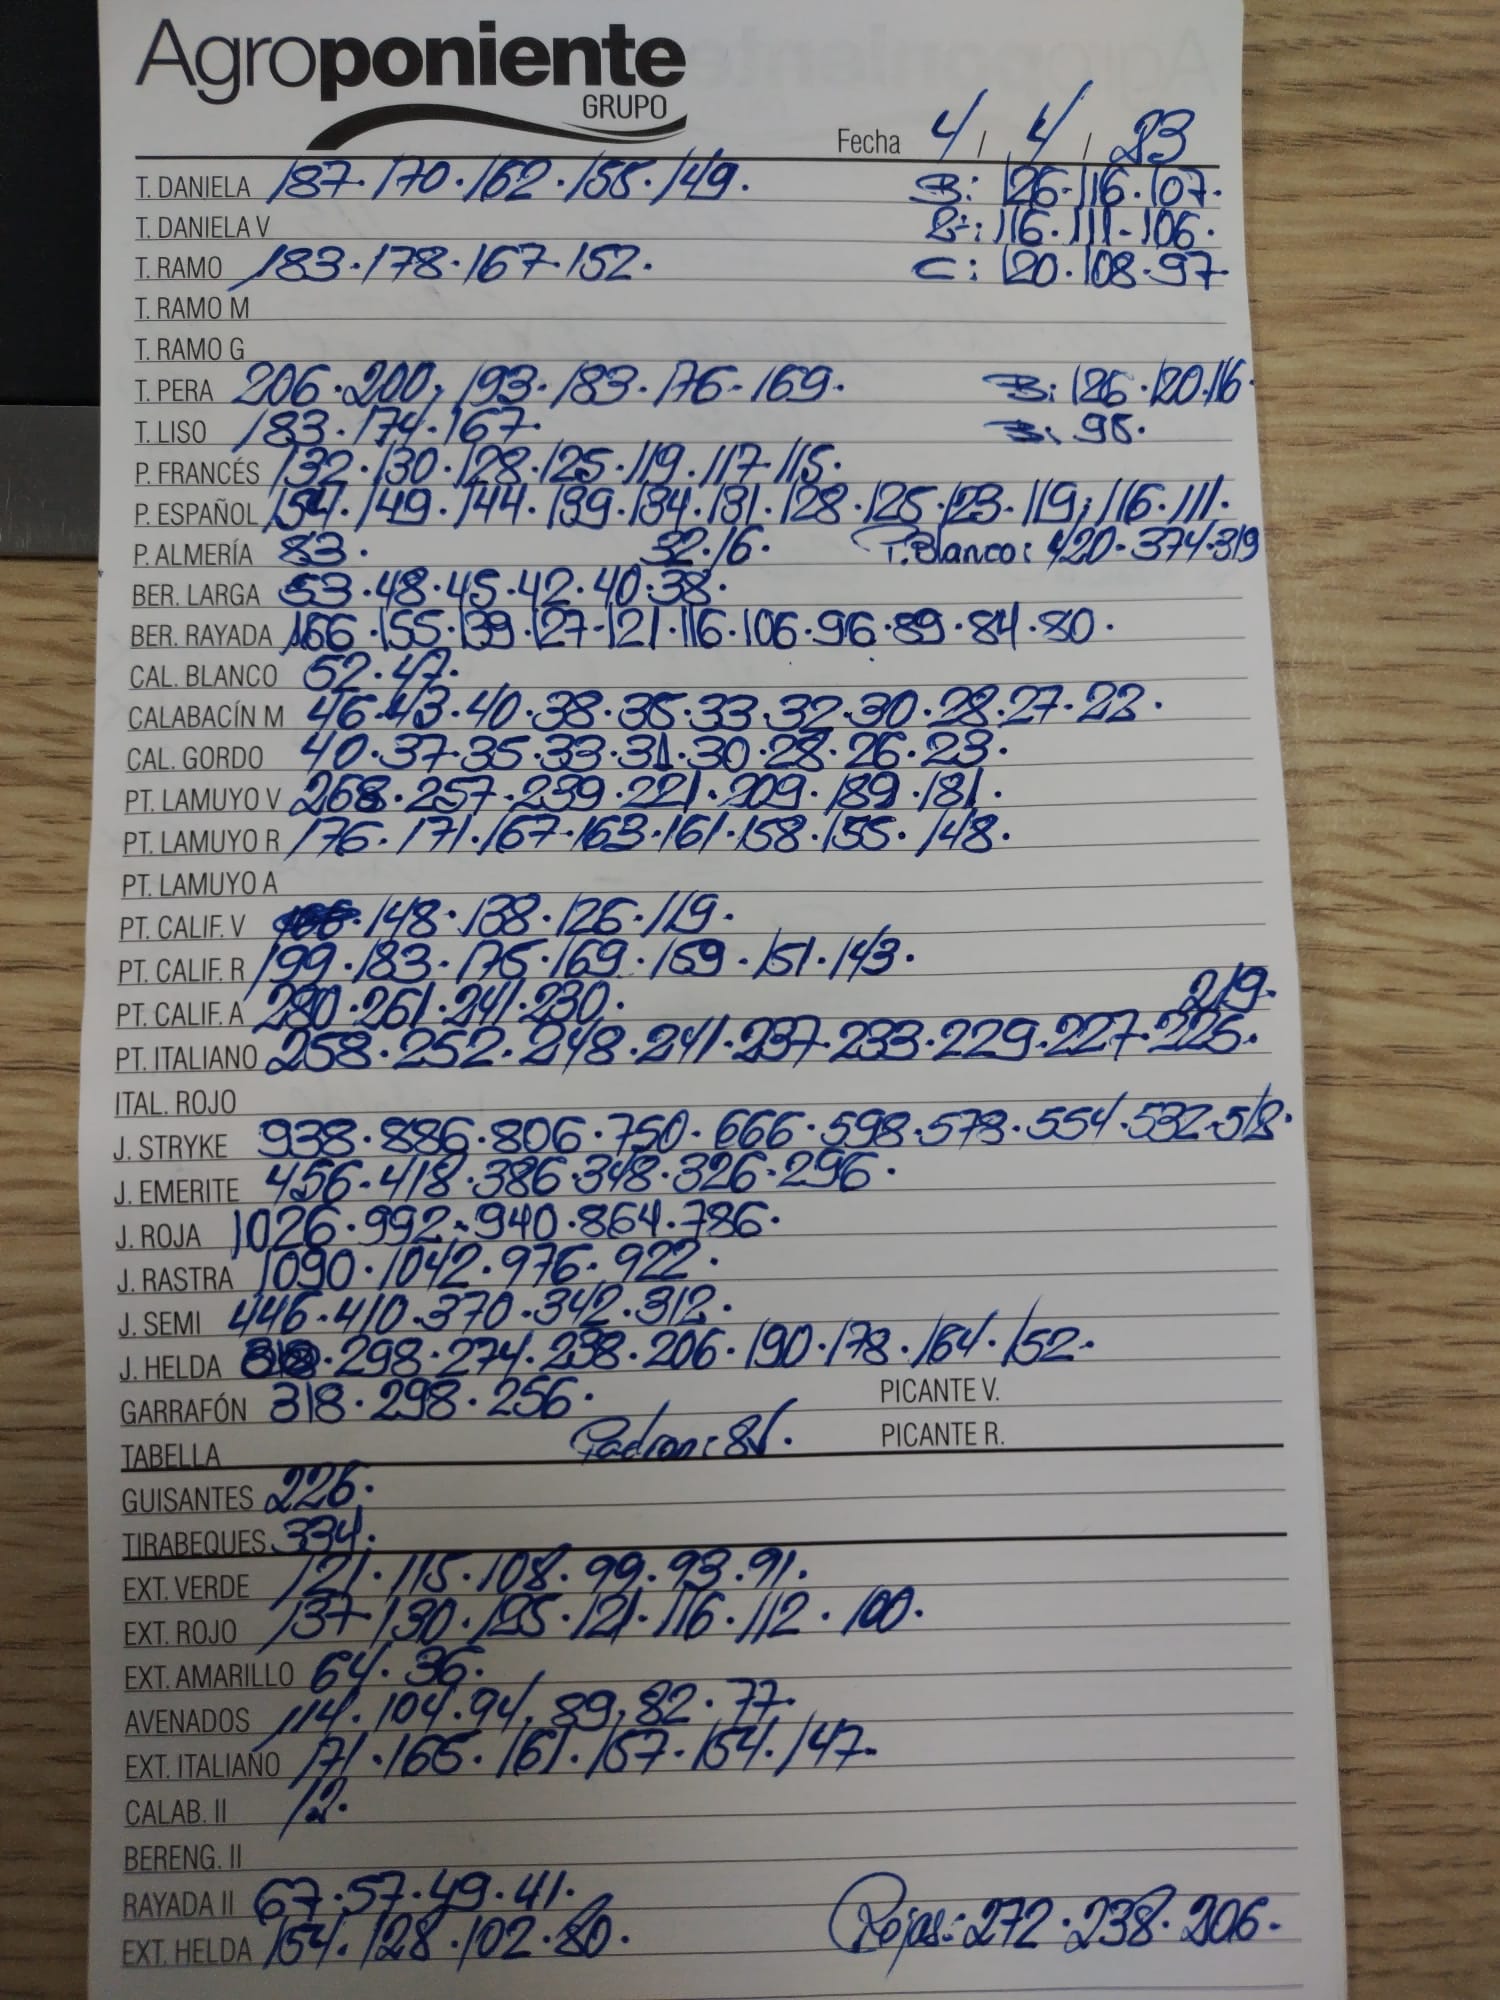 Agroponiente
GRUPO
Fecha 4 / 4 / 23
T. DANIELA 187·170·162·155·149. B: 126·116·107.
T. DANIELA V 116·111-106.
T. RAMO 183·178·167·152. C: 120·108·97.
T. RAMO M
T. RAMO G
T. PERA 206·200·193·183·176-169. B: 126·120·116·
T. LISO 183·174·167. B: 98.
P. FRANCÉS 132·130·128·125·119·117·115.
P. ESPAÑOL 154·149·144·139·134·131·128·125·123·119·116·111.
P. ALMERÍA 83. 32·16. T. Blanco: 420·374·319
BER. LARGA 53·48·45·42·40·38.
BER. RAYADA 166·155·139·127·121·116·106·96·89·84·80.
CAL. BLANCO 52·47.
CALABACÍN M 46·43·40·38·35·33·32·30·28·27·23.
CAL. GORDO 40·37·35·33·31·30·28·26·23.
PT. LAMUYO V 268·257·239·221·209·189·181.
PT. LAMUYO R 176·171·167·163·161·158·155·148.
PT. LAMUYO A
PT. CALIF. V 148·138·126·119.
PT. CALIF. R 199·183·175·169·159·151·143.
PT. CALIF. A 280·261·241·230. 219.
PT. ITALIANO 258·252·248·241·237·233·229·227·225.
ITAL. ROJO
J. STRYKE 938·886·806·750·666·598·578·554·532·518.
J. EMERITE 456·418·386·348·326·296.
J. ROJA 1026·992·940·864·786.
J. RASTRA 1090·1042·976·922.
J. SEMI 446·410·370·342·312.
J. HELDA 298·274·238·206·190·178·164·152.
GARRAFÓN 318·298·256. PICANTE V.
TABELLA Padron: PICANTE R.
GUISANTES 226.
TIRABEQUES 334.
EXT. VERDE 121·115·108·99·93·91.
EXT. ROJO 137·130·125·121·116·112·100.
EXT. AMARILLO 64·36.
AVENADOS 114·104·94·89·82·77.
EXT. ITALIANO 171·165·161·157·154·147.
CALAB. II 12.
BERENG. II
RAYADA II 67·57·49·41.
EXT. HELDA 154·128·102·80. Rojas: 272·238·206.